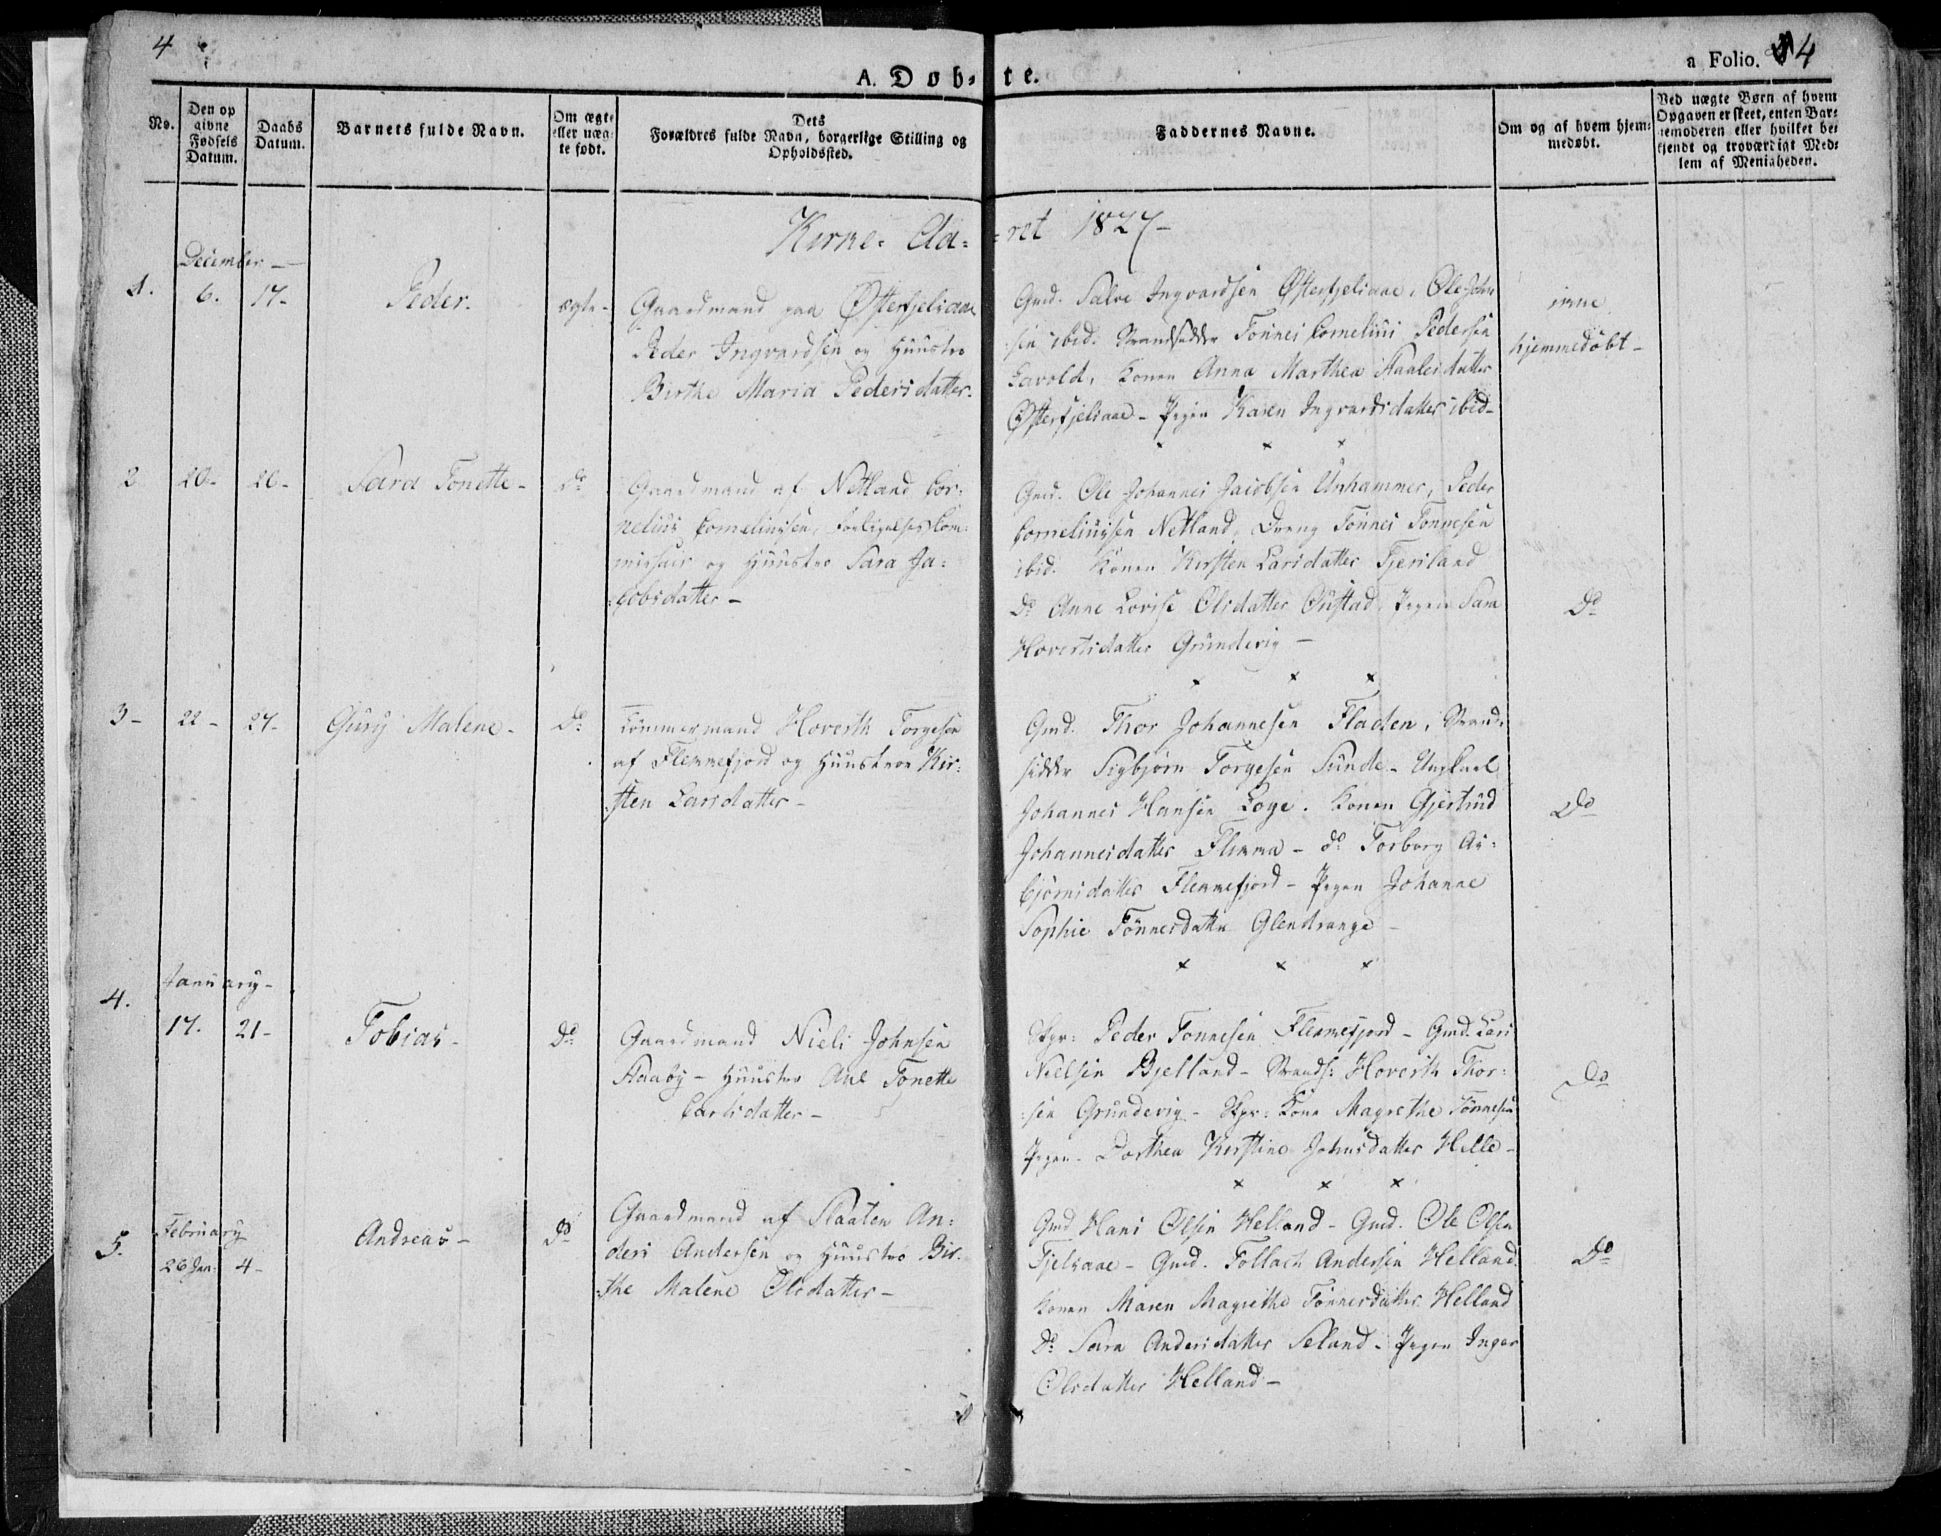 4
A. Døb-te.
a Folio. 4
No.
Den opgivne Fødsels Datum.
Daabs Datum.
Barnets fulde Navn.
Om ægte eller uægte født.
Dets
Forældres fulde Navn, borgerlige Stilling og
Opholdssted.
Faddernes Navne.
Om og af hvem hjem-
medøbt.
Ved uægte Børn af hvem
Opgaven er skeet, enten Bar-
nemoderen eller hvilket be-
kjendt og troværdigt Med-
lem af Menigheden.
Kirke- Aa-ret 1827-
December
1. 6. 17- Peder. ægte-
Gaardmand paa Østerfjeliaae
Peder Ingvardsen og Huustro
Birthe Maria Pedersdatter-
Gmd. Salve Ingvardsen Østerfjeliaae, Ole John
sen ibid. Strandsidder Tønnes Cornelius Pedersen
konen Anna Marthea Staalesdatter
Østerfjeliaae- Pigen Karen Ingvardsdatter ibid-
inne
hjemmedøbt-
2 20- 26- Sara Tonette- Do
Gaardmand af Netland Cor-
nelius Corneliussen, Forligelses Com-
missair og Huustro Sara Ja-
cobsdatter-
Gmd. Ole Johannes Jacobsen Unhammer, Peder
Corneliussen Netland, Dreng Tønnes Tønnesen
ibid. Konen Kirsten Larsdatter
Do Anne Lovise Olsdatter Pigen Sara
Hovertsdatter Grundevig-
Do
3- 22- 27- Gury Malene- Do
Tømmermand Hoverth Torgesen
af Flekkefjord og Huustroe Kir-
sten Larsdatter-
Gmd. Thor Johannesen Fladen, Strand-
sidder Sigbjørn Torgesen Sunde- Ungkarl
Johannes Hansen Loge. Konen Gjertrud
Johannesdatter Flikka- do Torborg As-
bjørnsdatter Flekkefjord- Pigen Johanne
Sophie Tønnesdatter Glendrange-
Do
January-
4.
17. 21- Tobias- Do
Gaardmand Niels Johnsen
Aaby- Huustro Ane Tonette
Carlsdatter-
Skpr: Peder Tønnesen Flekkefjord- Gmd. Lars
Nielsen Bjelland- Strands: Hoverth Thor-
sen Grundevig- Skpr: Kone Magrethe Tønnesen
Pigen- Dorthea Kirstine Johnsdatter Helle-
Do
February
5. 26 Jan. 4- Andreas- Do
Gaardmand af Slaaten An-
ders Andersen og Huustro Bir-
the Malene Olsdatter-
Gmd Hans Olsen Helland- Gmd. Ole Olsen
Fjeliaae- Gmd. Tollach Andersen Helland
Konen Maren Magrethe Tønnesdatter Helland
Do Sara Andersdatter Seland- Pigen Inger
Olsdatter Helland-
Do